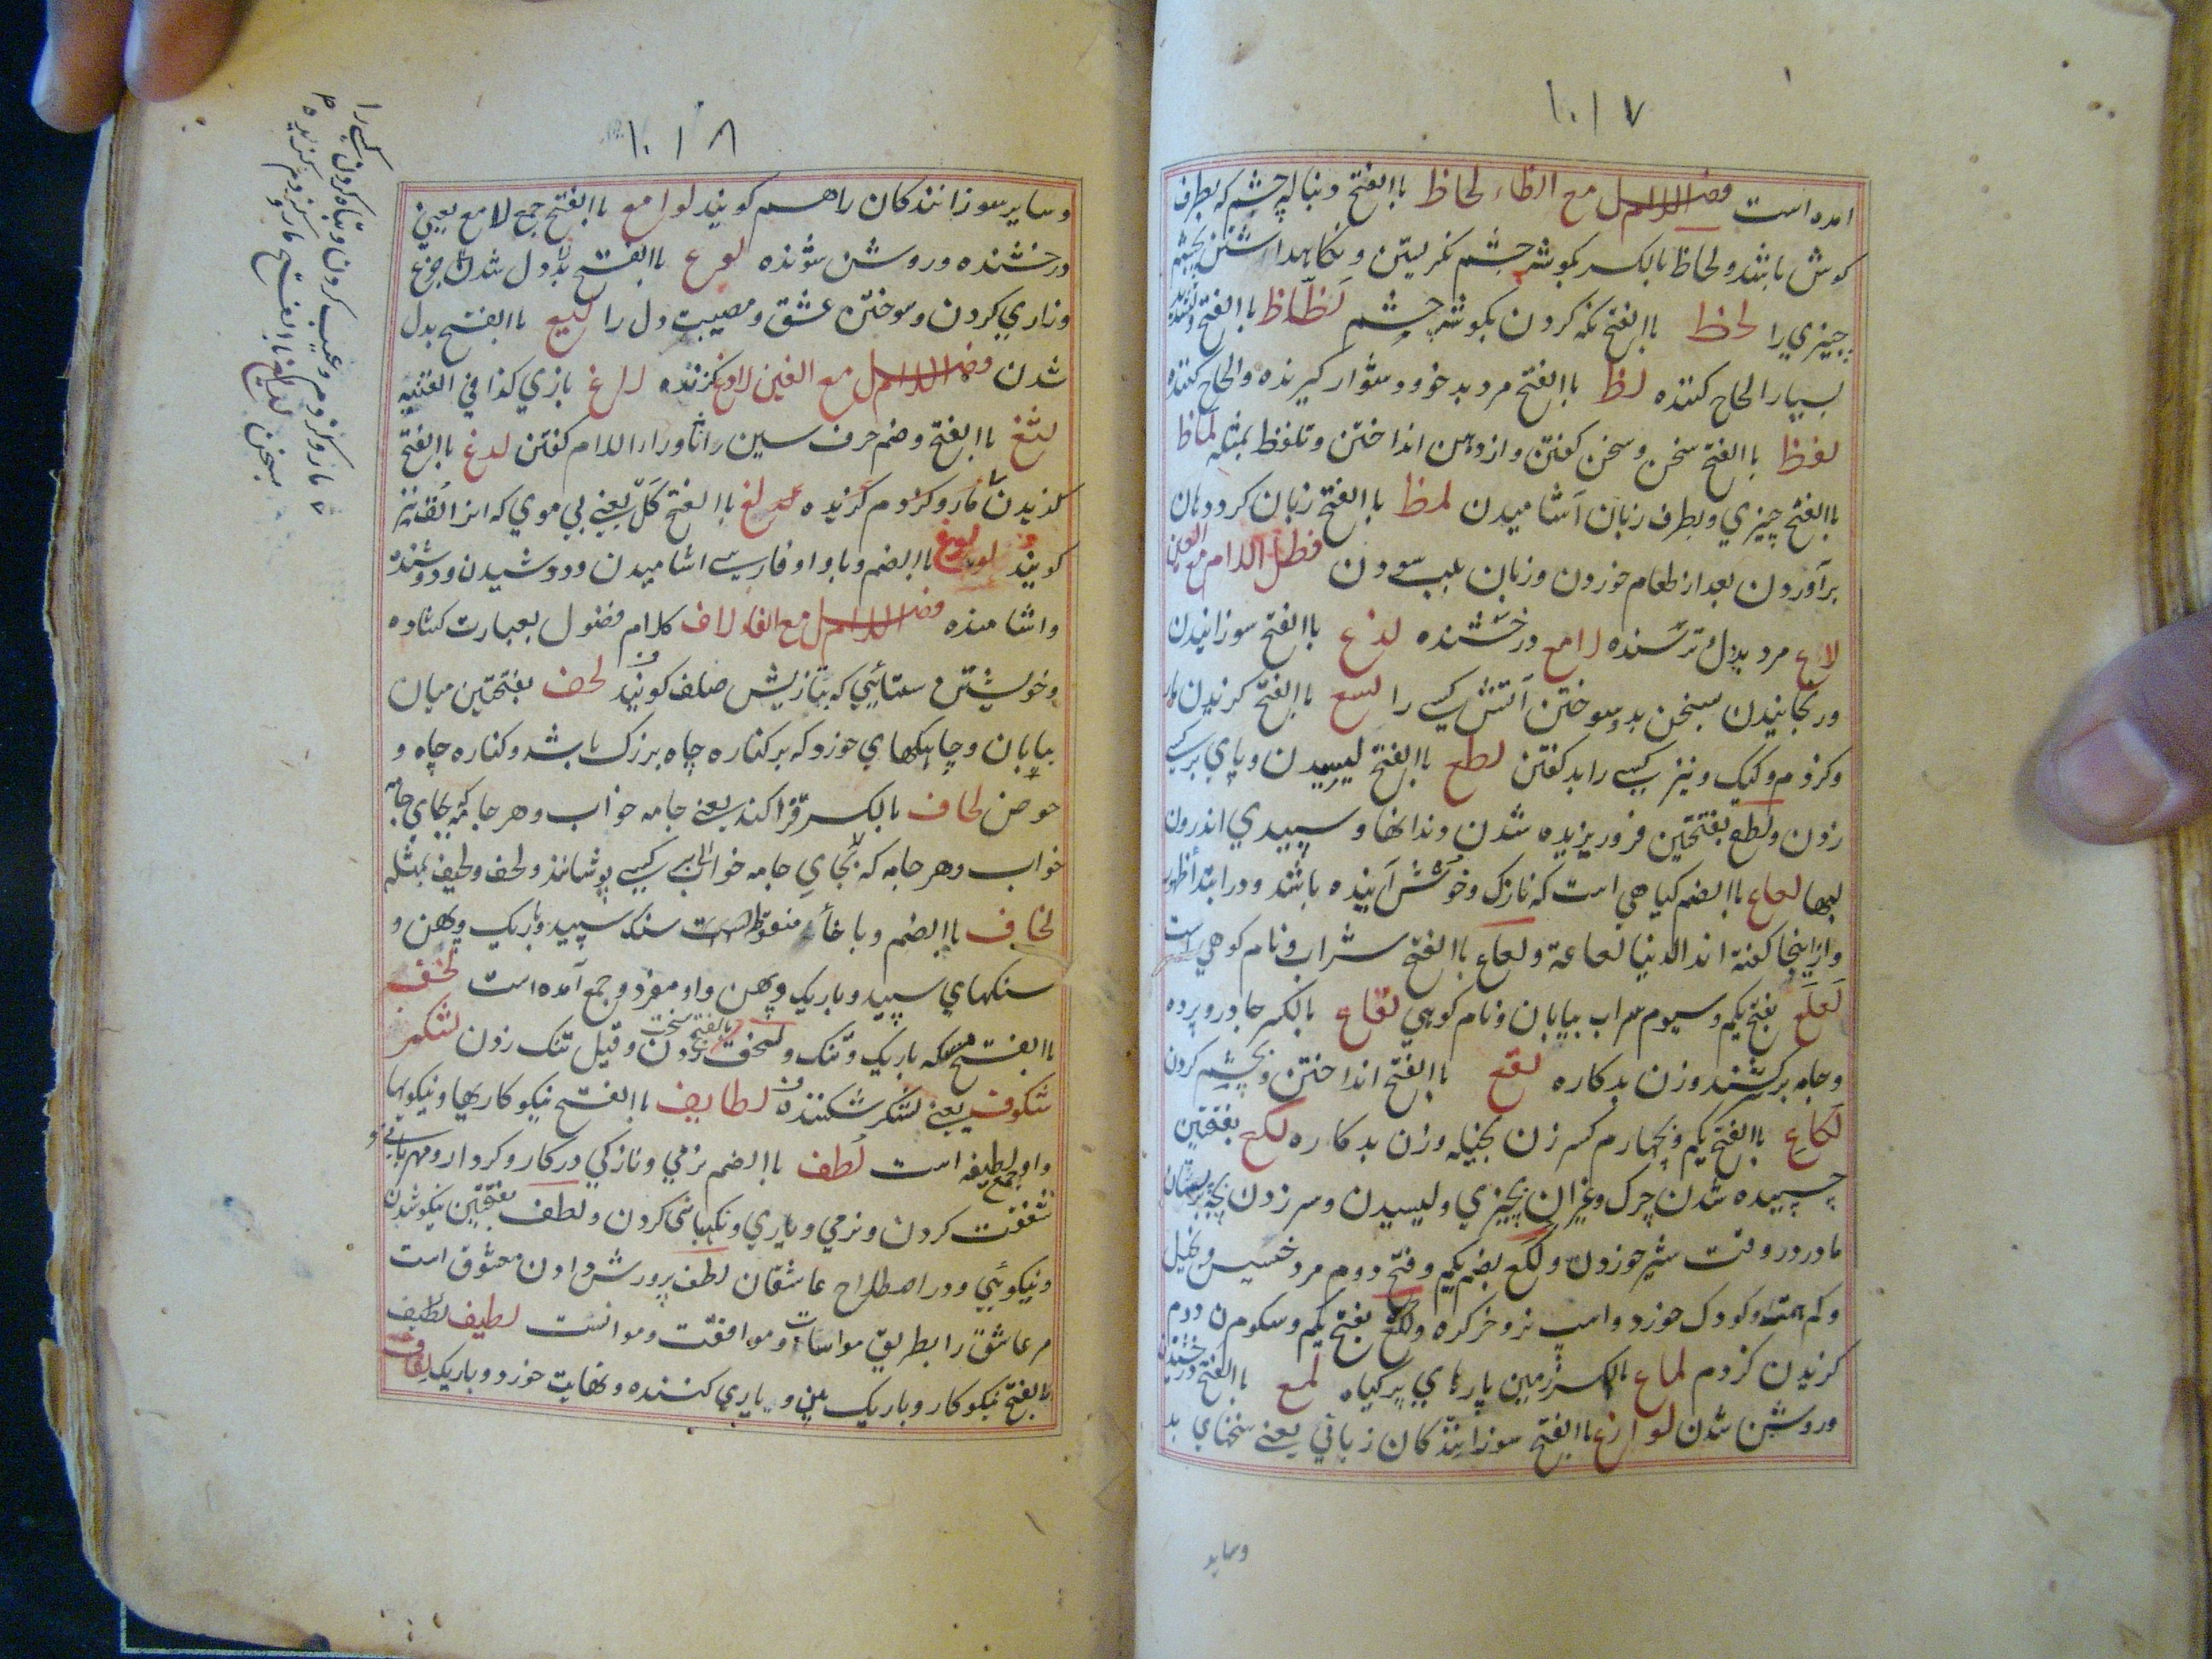 ١٠١٧
امده است فصل اللام مع الظاء لحاظ باالفتح دنباله چشم که بطرف
کوش باشد و لحاظ بالکسر بکوشه چشم نکریستن و نکاهداشتن بچشم
چیزي را لحظ باالفتح نکه کردن بکوشه چشم لظّاظ باالفتح و تشدید
بسیار الحاح کننده لظ باالفتح مرد بدخو و دشوار کیرنده و الحاح کننده
لفظ باالفتح سخن و سخن کفتن و از دهن انداختن و تلفظ بمثله لماظ
باالفتح چیزي و بطرف زبان آشامیدن لمظ باالفتح زبان کرد دهان
برآوردن بعد از طعام خوردن و زبان بلب سودن فصل اللام مع العین
لاع مرد بددل و ترسنده لامع درخشنده لذع باالفتح سوزانیدن
و رنجانیدن بسخن بد و سوختن آتش کسي را لسع باالفتح کزیدن مار
و کزدم و کیک و نیز کسي را بد کفتن لطع باالفتح لیسیدن و پاي بر کسي
زدن و لطع بفتحتین فرو ریزیده شدن دندانها و سپیدي اندرون
لبها لعاع باالضم کیاهي است که نازک و خوش آینده باشد و در ابتدا ظهور
و از اینجا کفته اند الدنیا لعاعة و لعاع باالفتح شراب و نام کوهي است
لَعلَع بفتح یکم و سیوم سراب بیابان و نام کوهي لقاع بالکسر چادر و پرده
و جامه بر کشند و زن بدکاره لقع باالفتح انداختن و بچشم کردن
لَکاعِ باالفتح یکم و بچهارم کسر زن بخیله و زن بدکاره لکع بفتحتین
چسپیده شدن چرک و غیر آن بچیزي و لیسیدن و سر زدن بچه بپستان
مادر در وقت شیر خوردن و لکع بضم یکم و فتح دوم مرد خسیس و بخیل
و کم همت و کودک خورد و اسپ نر و خر کره و لکع بفتح یکم و سکون دوم
کزیدن کزدم لماع بالکسر زمین پارهاي پر کیاه لمع باالفتح درخشیدن
و روشن شدن لواذع باالفتح سوزانندکان زبانی یعنے سخنهاي بد
وسایر
١٠١٨
و سایر سوزانندکان را هم کویند لوامع باالفتح جمع لامع یعنی
درخشنده و روشن شونده لوع باالفتح بددل شدن و جزع
و زاري کردن و سوختن عشق و مصیبت دل را لیع باالفتح بددل
شدن فصل اللام مع الغین لادغ کزنده لاغ بازي کذا في القنیه
لثغ باالفتح و ضم حرف سین را ثا و را را لام کفتن لدغ باالفتح
کزیدن مار و کزدم کزیده لغ باالفتح کَلّ یعنے بی موي که انرا لق نیز
کویند لوغ باالضم و با واو فارسے اشامیدن و دوشیدن و دوشنده
و اشامنده فصل اللام مع الفاء لاف کلام فضول بعبارت کشاده
و خویشتن ستائیي که بتازیش صلف کویند لحف بفتحتین میان
بیابان و چاهکهاي خورد که بر کناره چاه بزرک باشد و کناره چاه و
حوض لحاف بالکسر قزاکند یعنے جامه خواب و هر جامه که بجاي جامه
خواب و هر جامه که بجاي جامه خواب کسے پوشانند و لحف و لحیف بمثله
لخاف باالضم و با خاء منقوطه است سنک سپید و باریک و پهن و
سنکهاي سپید و باریک و پهن و او مفرد و جمع آمده است لخف
باالفتح مسکه باریک و تنک و لخف بالفتح سخت زدن و قیل تنک زدن لشکر
شکوف یعنے لشکر شکننده لطایف باالفتح نیکوکاریها و نیکویها
و او جمع لطیفه است لُطف باالضم نرمي و نازکي در کار و کردار و مهربانی
شفقت کردن و نرمي و یاري و نکهبانی کردن و لطف بفتحتین نیکو شدن
و نیکوئیي و در اصطلاح عاشقان لطف پرورش دادن معشوق است
مر عاشق را بطریق مواسات و موافقت و موانست لطیف لطیف
باالفتح نیکوکار و باریک بین و یاري کننده و نهایت خورد و باریک لفاف
کسے را
مار و کزدم و عیب کردن و تباه کردن
باالفتح مار و کزدم کزیده
بسخن لدیغ